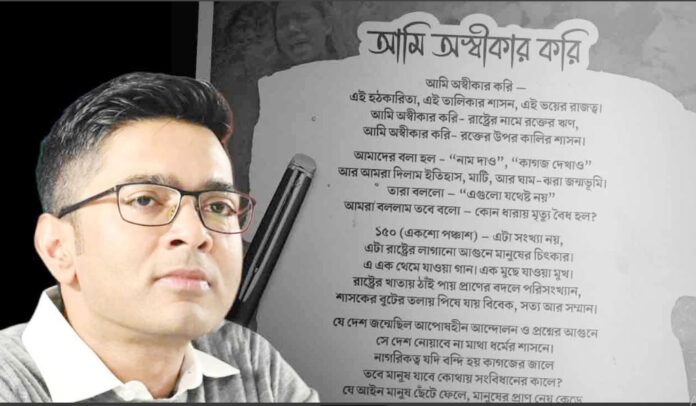 আমি অস্বীকার করি
আমি অস্বীকার করি —
এই হঠকারিতা, এই তালিকার শাসন, এই ভয়ের রাজত্ব।
আমি অস্বীকার করি- রাষ্ট্রের নামে রক্তের ঋণ,
আমি অস্বীকার করি- রক্তের উপর কালির শাসন।
আমাদের বলা হল - “নাম দাও”, “কাগজ দেখাও”
আর আমরা দিলাম ইতিহাস, মাটি, আর ঘাম-ঝরা জন্মভূমি।
তারা বললো – “এগুলো যথেষ্ট নয়”
আমরা বললাম তবে বলো – কোন ধারায় মৃত্যু বৈধ হল?
১৫০ (একশো পঞ্চাশ) – এটা সংখ্যা নয়,
এটা রাষ্ট্রের লাগানো আগুনে মানুষের চিৎকার।
এ এক থেমে যাওয়া গান। এক মুছে যাওয়া মুখ।
রাষ্ট্রের খাতায় ঠাঁই পায় প্রাণের বদলে পরিসংখ্যান,
শাসকের বুটের তলায় পিষে যায় বিবেক, সত্য আর সম্মান।
যে দেশ জন্মেছিল আপোষহীন আন্দোলন ও প্রশ্নের আগুনে
সে দেশ নোয়াবে না মাথা ধর্মের শাসনে।
নাগরিকত্ব যদি বন্দি হয় কাগজের জালে
তবে মানুষ যাবে কোথায় সংবিধানের কালে?
যে আইন মানুষ ছেঁটে ফেলে, মানুষের প্রাণ নেয় কেড়ে